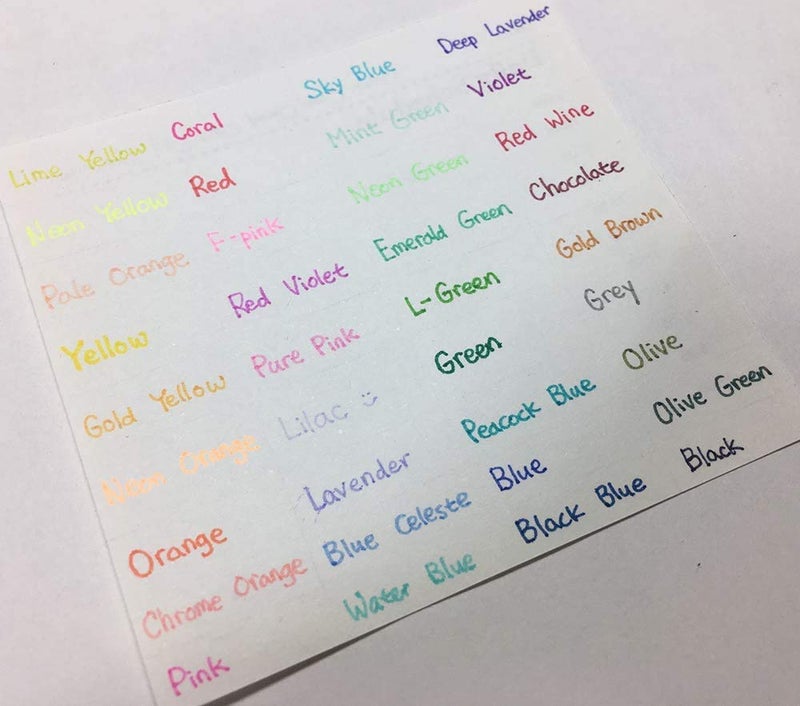 Lime Yellow
Neon Yellow
Pale Orange
Yellow
Gold Yellow
Neon Orange
Orange
Chrome Orange
Pink
Coral
Red
F-pink
Red Violet
Pure Pink
Lilac :)
Lavender
Blue Celeste
Water Blue
Sky Blue
Mint Green
Neon Green
Emerald Green
L-Green
Green
Peacock Blue
Blue
Black Blue
Deep Lavender
Violet
Red Wine
Chocolate
Gold Brown
Grey
Olive
Olive Green
Black